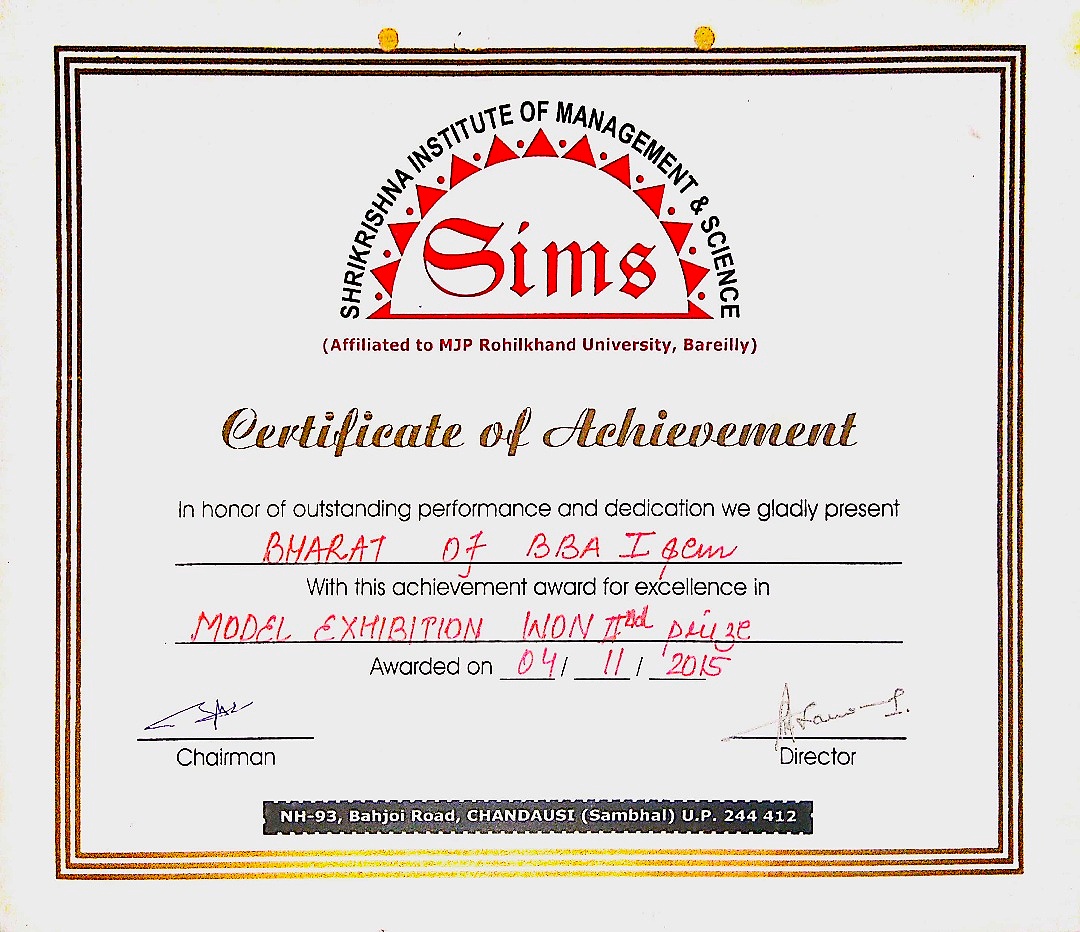 SHRIKRISHNA INSTITUTE OF MANAGEMENT & SCIENCE
Sims
(Affiliated to MJP Rohilkhand University, Bareilly)
Certificate of Achievement
In honor of outstanding performance and dedication we gladly present
BHARAT OF BBA I sem
With this achievement award for excellence in
MODEL EXHIBITION WON IInd prize
Awarded on 04/ 11 / 2015
Chairman Director
NH-93, Bahjoi Road, CHANDAUSI (Sambhal) U.P. 244 412